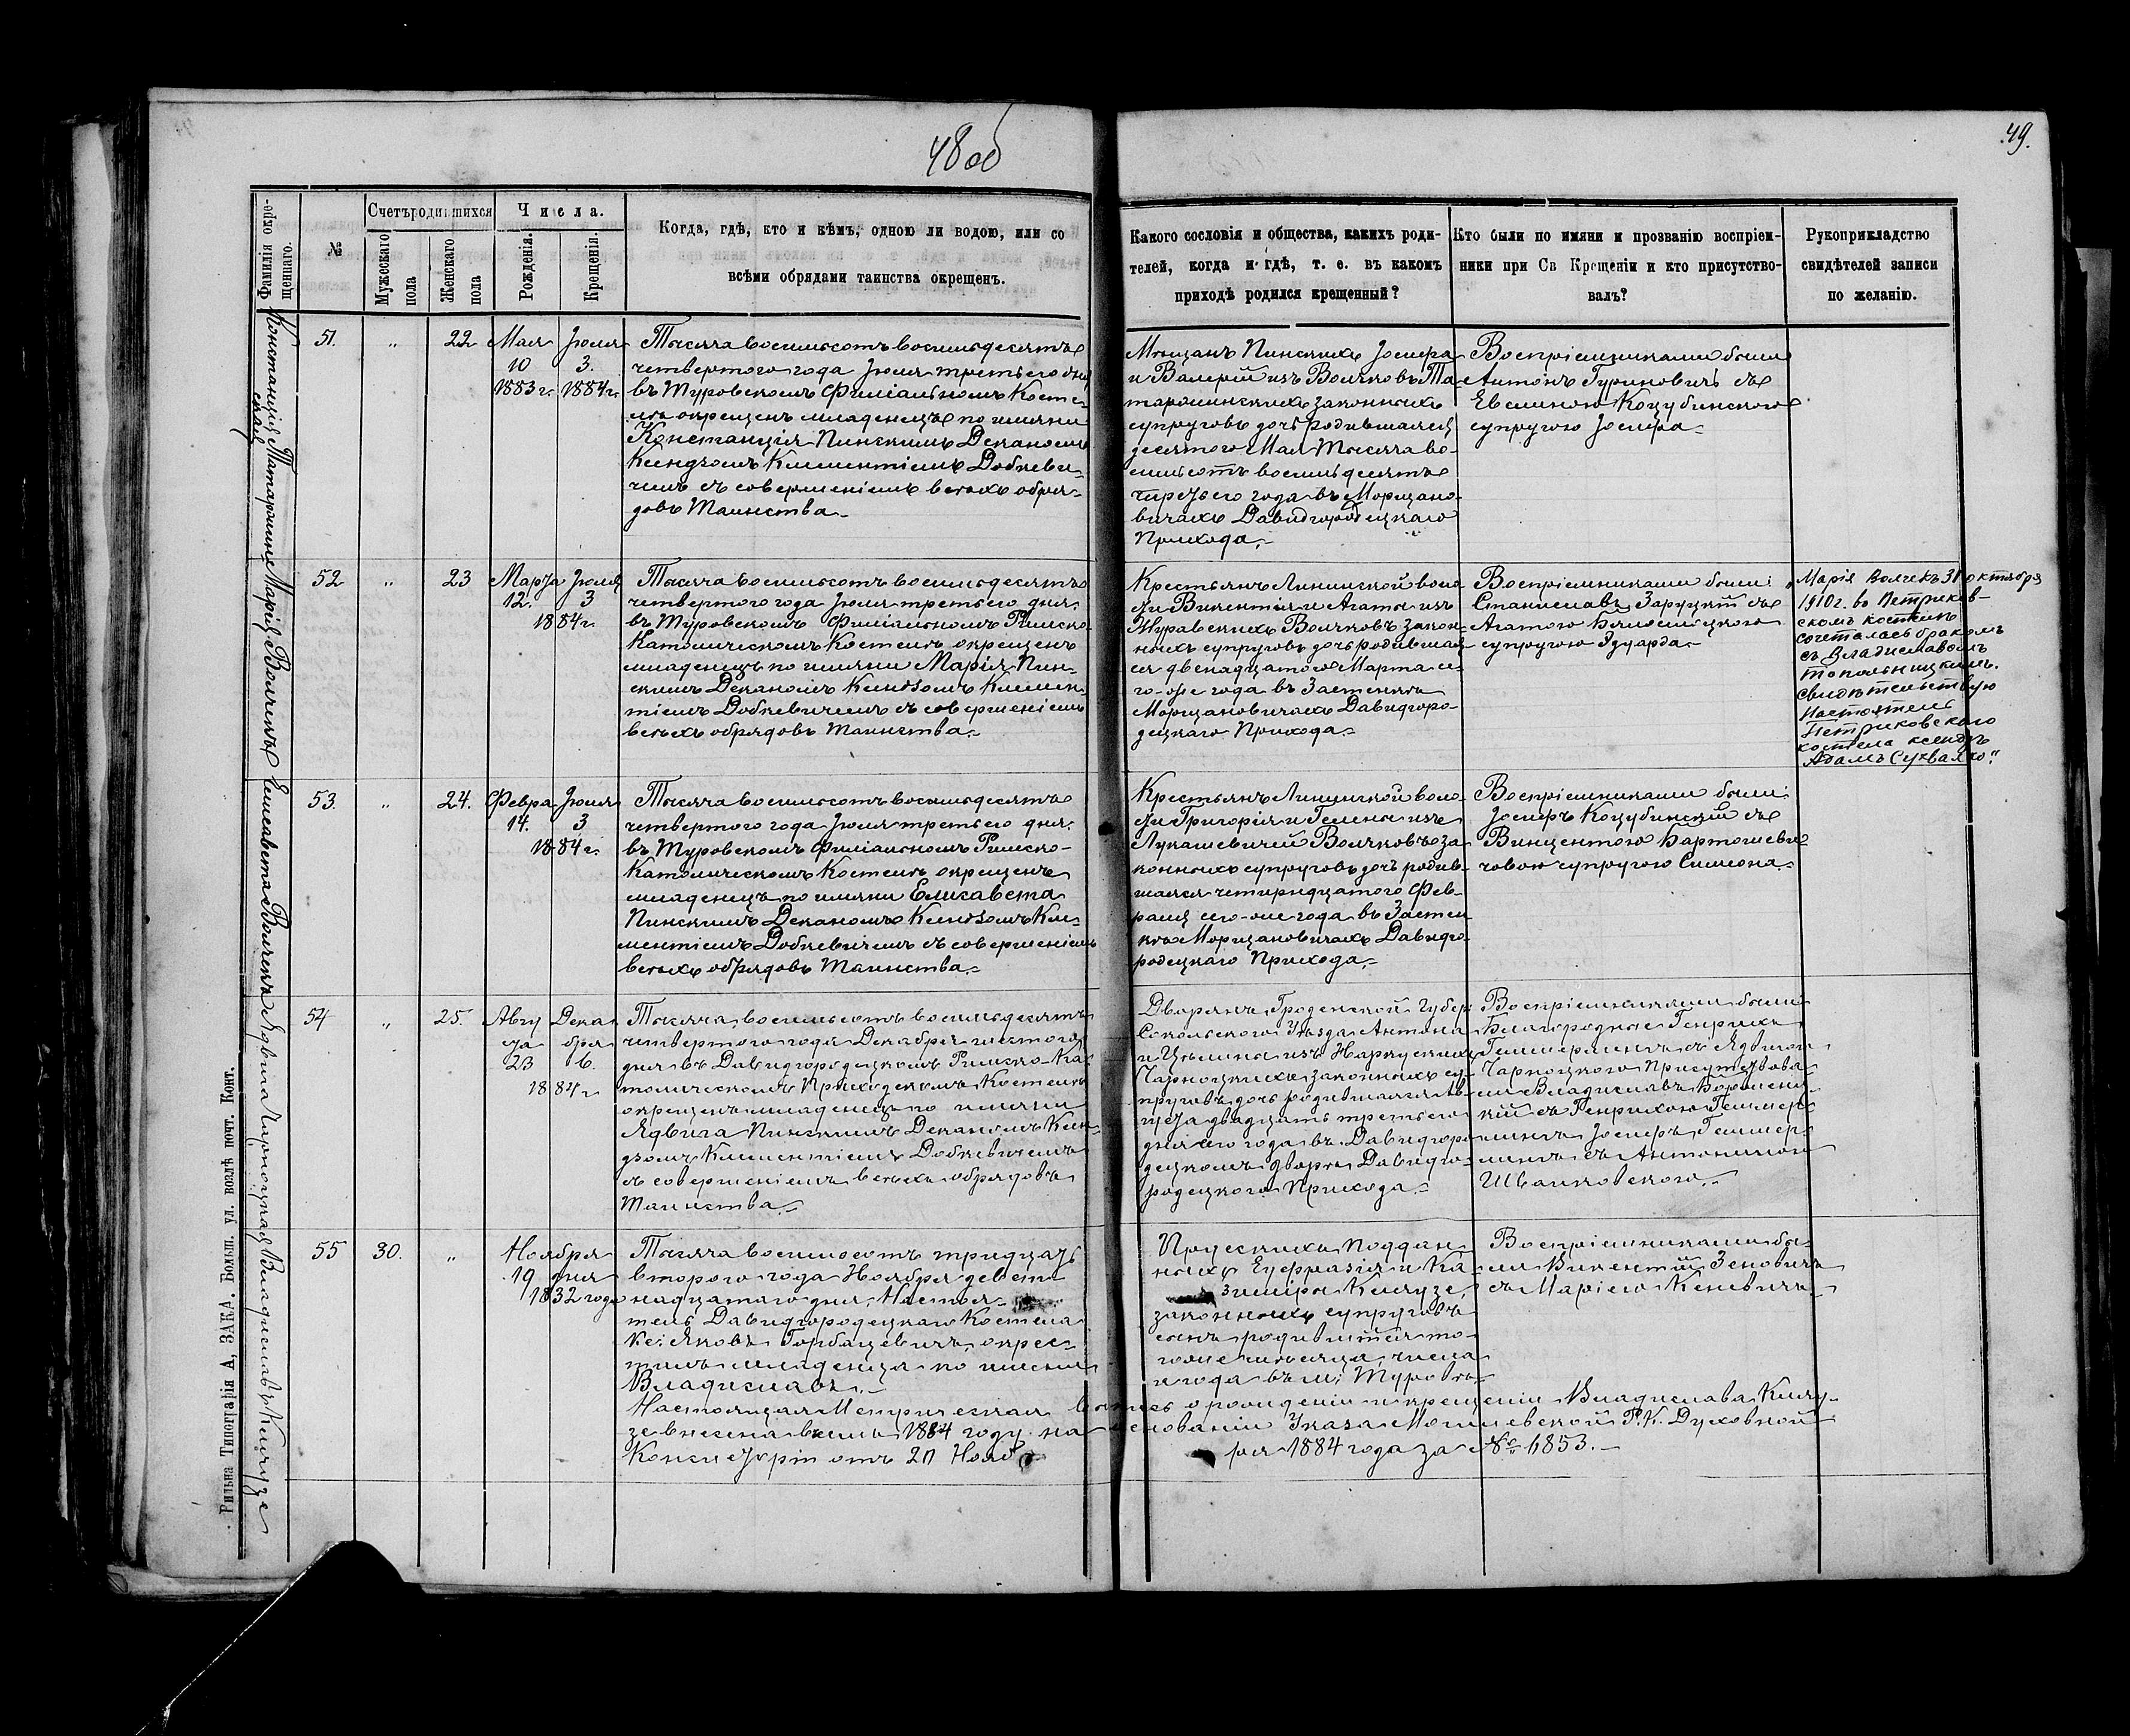 48 об
49.
Фамилія окре-
щеннаго.
№
Счетъ родившихся
Мужескаго
пола
Женскаго
пола
Числа.
Рожденія.
Крещенія.
Когда, гдѣ, кто и кѣмъ, одною ли водою, или со
всѣми обрядами таинства окрещенъ.
Какого сословія и общества, какихъ роди-
телей, когда и гдѣ, т. е. въ какомъ
приходѣ родился крещенный?
Кто были по имяни и прозванію воспріем-
ники при Св Крещеніи и кто присутство-
валъ?
Рукоприкладство
свидѣтелей записи
по желанію.
Констанція Татаржин-
ская
51.
"
22
Мая
10
1883 г.
Іюля
3.
1884 г.
Тысяча восемьсотъ восемьдесятъ
четвертого года Іюля третьего дня
въ Туровскомъ Филіальномъ Косте-
лѣ окрещенъ младенецъ по имяни
Констанція Пинскимъ Деканомъ
Ксендзомъ Климентіемъ Добкеви-
чемъ съ совершеніемъ всѣхъ обря-
довъ Таинства
Мѣщанъ Пинскихъ Іосифа
и Валеріи изъ Волчковъ Та-
таржинскихъ законныхъ
супруговъ дочь родившаяся
десятого Мая Тысяча во-
семьсотъ восемьдесятъ
третьего года въ Морщано-
вичахъ Давидгородецкаго
Прихода.
Воспріемниками были
Антонъ Гуриновичъ съ
Евелиною Коцубинскою
супругою Іосифа
Марія Волчекъ
52
"
23
Марта
12.
Іюля
3
1884 г.
Тысяча восемьсотъ восемьдесятъ
четвертого года Іюля третьего дня
въ Туровскомъ Филіальномъ Римско-
Католическомъ Костелѣ окрещенъ
младенецъ по имяни Марія Пин-
скимъ Деканомъ Ксендзомъ Климен-
тіемъ Добкевичемъ съ совершеніемъ
всѣхъ обрядовъ Таинства
Крестьянъ Лининской воло-
сти Викентія и Агаты изъ
Журавскихъ Волчковъ закон-
ныхъ супруговъ дочь родившая-
ся двенадцатого Марта се-
го-же года въ Застенкѣ
Морщановичахъ Давидгоро-
децкаго Прихода
Воспріемниками были:
Станиславъ Заруцкій съ
Агатою
супругою Эдуарда
"Марія Волчекъ 31 октября
1910 г. въ Петриков-
скомъ костелѣ
сочеталась бракомъ
съ Владиславомъ
Топольницкимъ.
Свидѣтельствую
Настоятель
Петриковскаго
костела ксендзъ
Адамъ Сухвалко."
Елисавета Волчекъ
53.
"
24.
Февра.
14.
Іюля
3
1884 г.
Тысяча восемьсотъ восемьдесятъ
четвертого года Іюля третьего дня
въ Туровскомъ Филіальномъ Римско-
Католическомъ Костелѣ окрещенъ
младенецъ по имяни Елисавета
Пинскимъ Деканомъ Ксендзомъ Кли-
ментіемъ Добкевичемъ съ совершеніемъ
всѣхъ обрядовъ Таинства
Крестьянъ Лининской воло-
сти Григорія и Гелены изъ
Лукашевичей Волчковъ за-
конныхъ супруговъ дочь родив-
шаяся четырнадцатого Фев-
раля сего-же года въ Застен-
кѣ Морщановичахъ Давидго-
родецкаго Прихода
Воспріемниками были:
Іосифъ Коцубинскій съ
Винцентою Бартошеви-
човою супругою Симеона
Ядвига Чарноцкая
54
"
25.
Авгу
ста
23
Дека
бря
6.
1884 г.
Тысяча восемьсотъ восемьдесятъ
четвертого года Декабря шестого
дня въ Давидгородецкомъ Римско-Ка-
толическомъ Приходскомъ Костелѣ
окрещенъ младенецъ по имяни
Ядвига Пинскимъ Деканомъ Ксен-
дзомъ Климентіемъ Добкевичемъ
съ совершеніемъ всѣхъ обрядовъ
Таинства
Дворянъ Гроденской Губер
Сокольского Уѣзда Антона
и Целины изъ
Чарноцкихъ законныхъ су-
пруговъ дочь родившаяся Ав-
густа двадцать третьего
дня сего года въ Давидгоро-
децкомъ дворѣ Давидго-
родецкого Прихода
Воспріемниками были
Благородные Генрихъ
съ Ядвигою
Чарноцкою Присутствова-
ли Владиславъ
съ
Іосифъ
съ Антониною
Владиславъ Клюзе
55
30.
"
Ноября
19 дня
1832 года
Тысяча восемьсотъ тридцать
второго года Ноября девят-
надцатаго дня, Настоя-
тель Давидгородецкаго Костела
Кс: Яковъ Горбацевичъ окрес-
тилъ младенца по имени
Владиславъ.
Прусскихъ поддан-
ныхъ Еуфразія и Ка-
зиміры Клюузе,
законныхъ супруговъ
сынъ родившійся то-
гоже мѣсяца, числа
и года въ м: Туровѣ
Воспріемниками бы-
ли Викентій Зеновичъ
съ Маріею Кеневичъ
Настоящая Метрическая запись о рожденіи и крещеніи Владислава Клюу-
зе внесена въ семъ 1884 году на основаніи Указа Могилевской Р. К. Духовной
Консисторіи отъ 20 Ноября 1884 года за № 6853.
Рильна Типографія А, ЗАКА. Больш. ул. возлѣ почт. Конт.